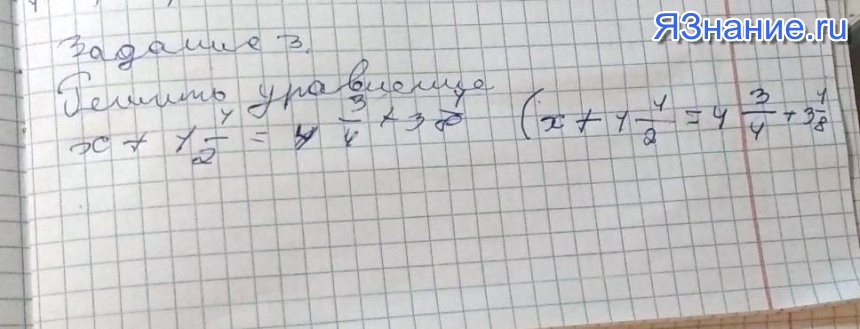 ЯЗнание.ru
Задание 3.
Решить уравнение
x + 1 1/2 = 4 3/4 + 3 1/8 (x + 1 1/2 = 4 3/4 + 3 1/8